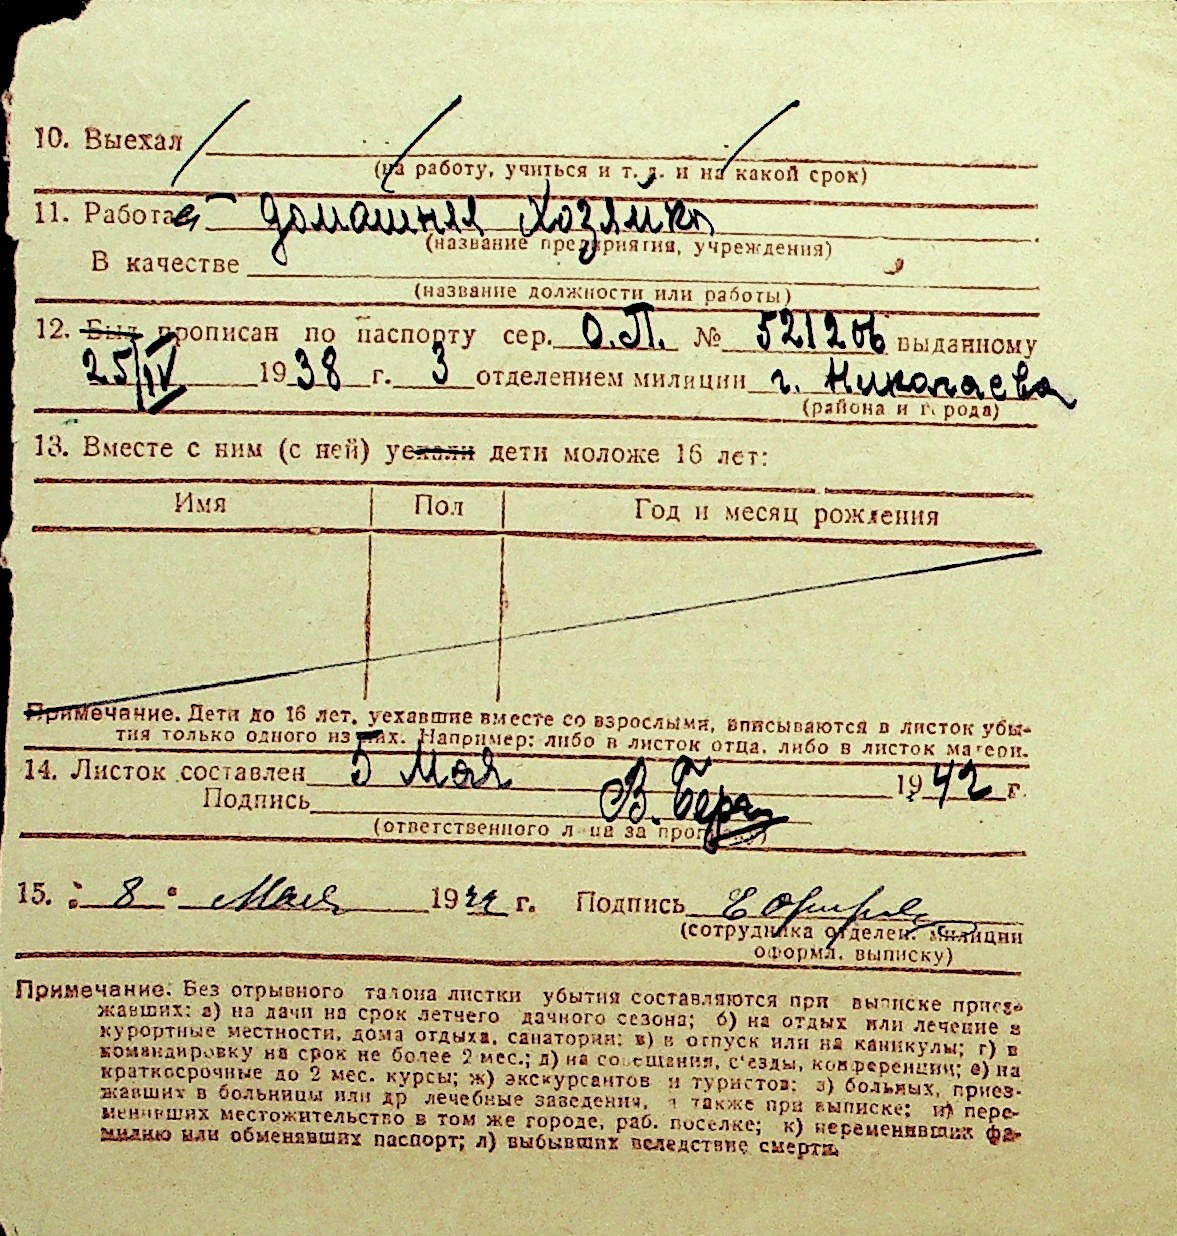 10. Выехал
(на работу, учиться и т. д. и на какой срок)
11. Работает домашняя хозяйка
(название предприятия, учреждения)
В качестве
(название должности или работы)
12. Был прописан по паспорту сер. О.П. № 521206 выданному
25/IV 1938 г. 3 отделением милиции г. Николаева
(района и города)
13. Вместе с ним (с ней) уехали дети моложе 16 лет:
Имя Пол Год и месяц рождения
Примечание. Дети до 16 лет, уехавшие вместе со взрослыми, вписываются в листок убы-
тия только одного из них. Например: либо в листок отца, либо в листок матери.
14. Листок составлен 5 Мая 1942 г.
Подпись В.
(ответственного лица за прописку)
15. "8" Мая 19 г. Подпись
(сотрудника отделен. милиции
оформл. выписку)
Примечание. Без отрывного талона листки убытия составляются при выписке приез-
жавших: а) на дачи на срок летнего дачного сезона; б) на отдых или лечение в
курортные местности, дома отдыха, санатории; в) в отпуск или на каникулы; г) в
командировку на срок не более 2 мес.; д) на совещания, с'езды, конференции; е) на
краткосрочные до 2 мес. курсы; ж) экскурсантов и туристов; з) больных, приез-
жавших в больницы или др лечебные заведения, а также при выписке; и) пере-
менивших местожительство в том же городе, раб. поселке; к) переменивших фа-
милию или обменявших паспорт; л) выбывших вследствие смерти.